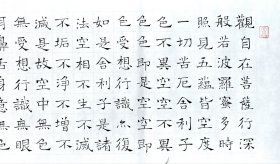 觀自在菩薩行深
般若波羅蜜多時
照見五蘊皆空度
一切苦厄舍利子
色不異空空不異
色色即是空空即
色受想行識亦復
如是舍利子是諸
法空相不生不滅
不垢不淨不增不
減是故空中無色
無受想行識無眼
耳鼻舌身意無色